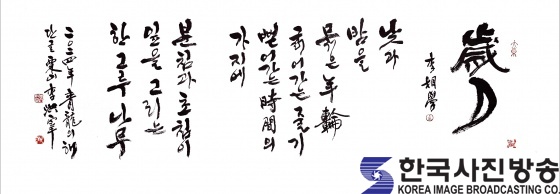 歲月
낮과
밤을
묶은 年輪
굵어가는 줄기
뻗어가는 時間의
가지에
분침과 초침이
잎을 그리는
한 그루 나무
二〇二四年 靑龍의 해
한국사진방송
KOREA IMAGE BROADCASTING CO